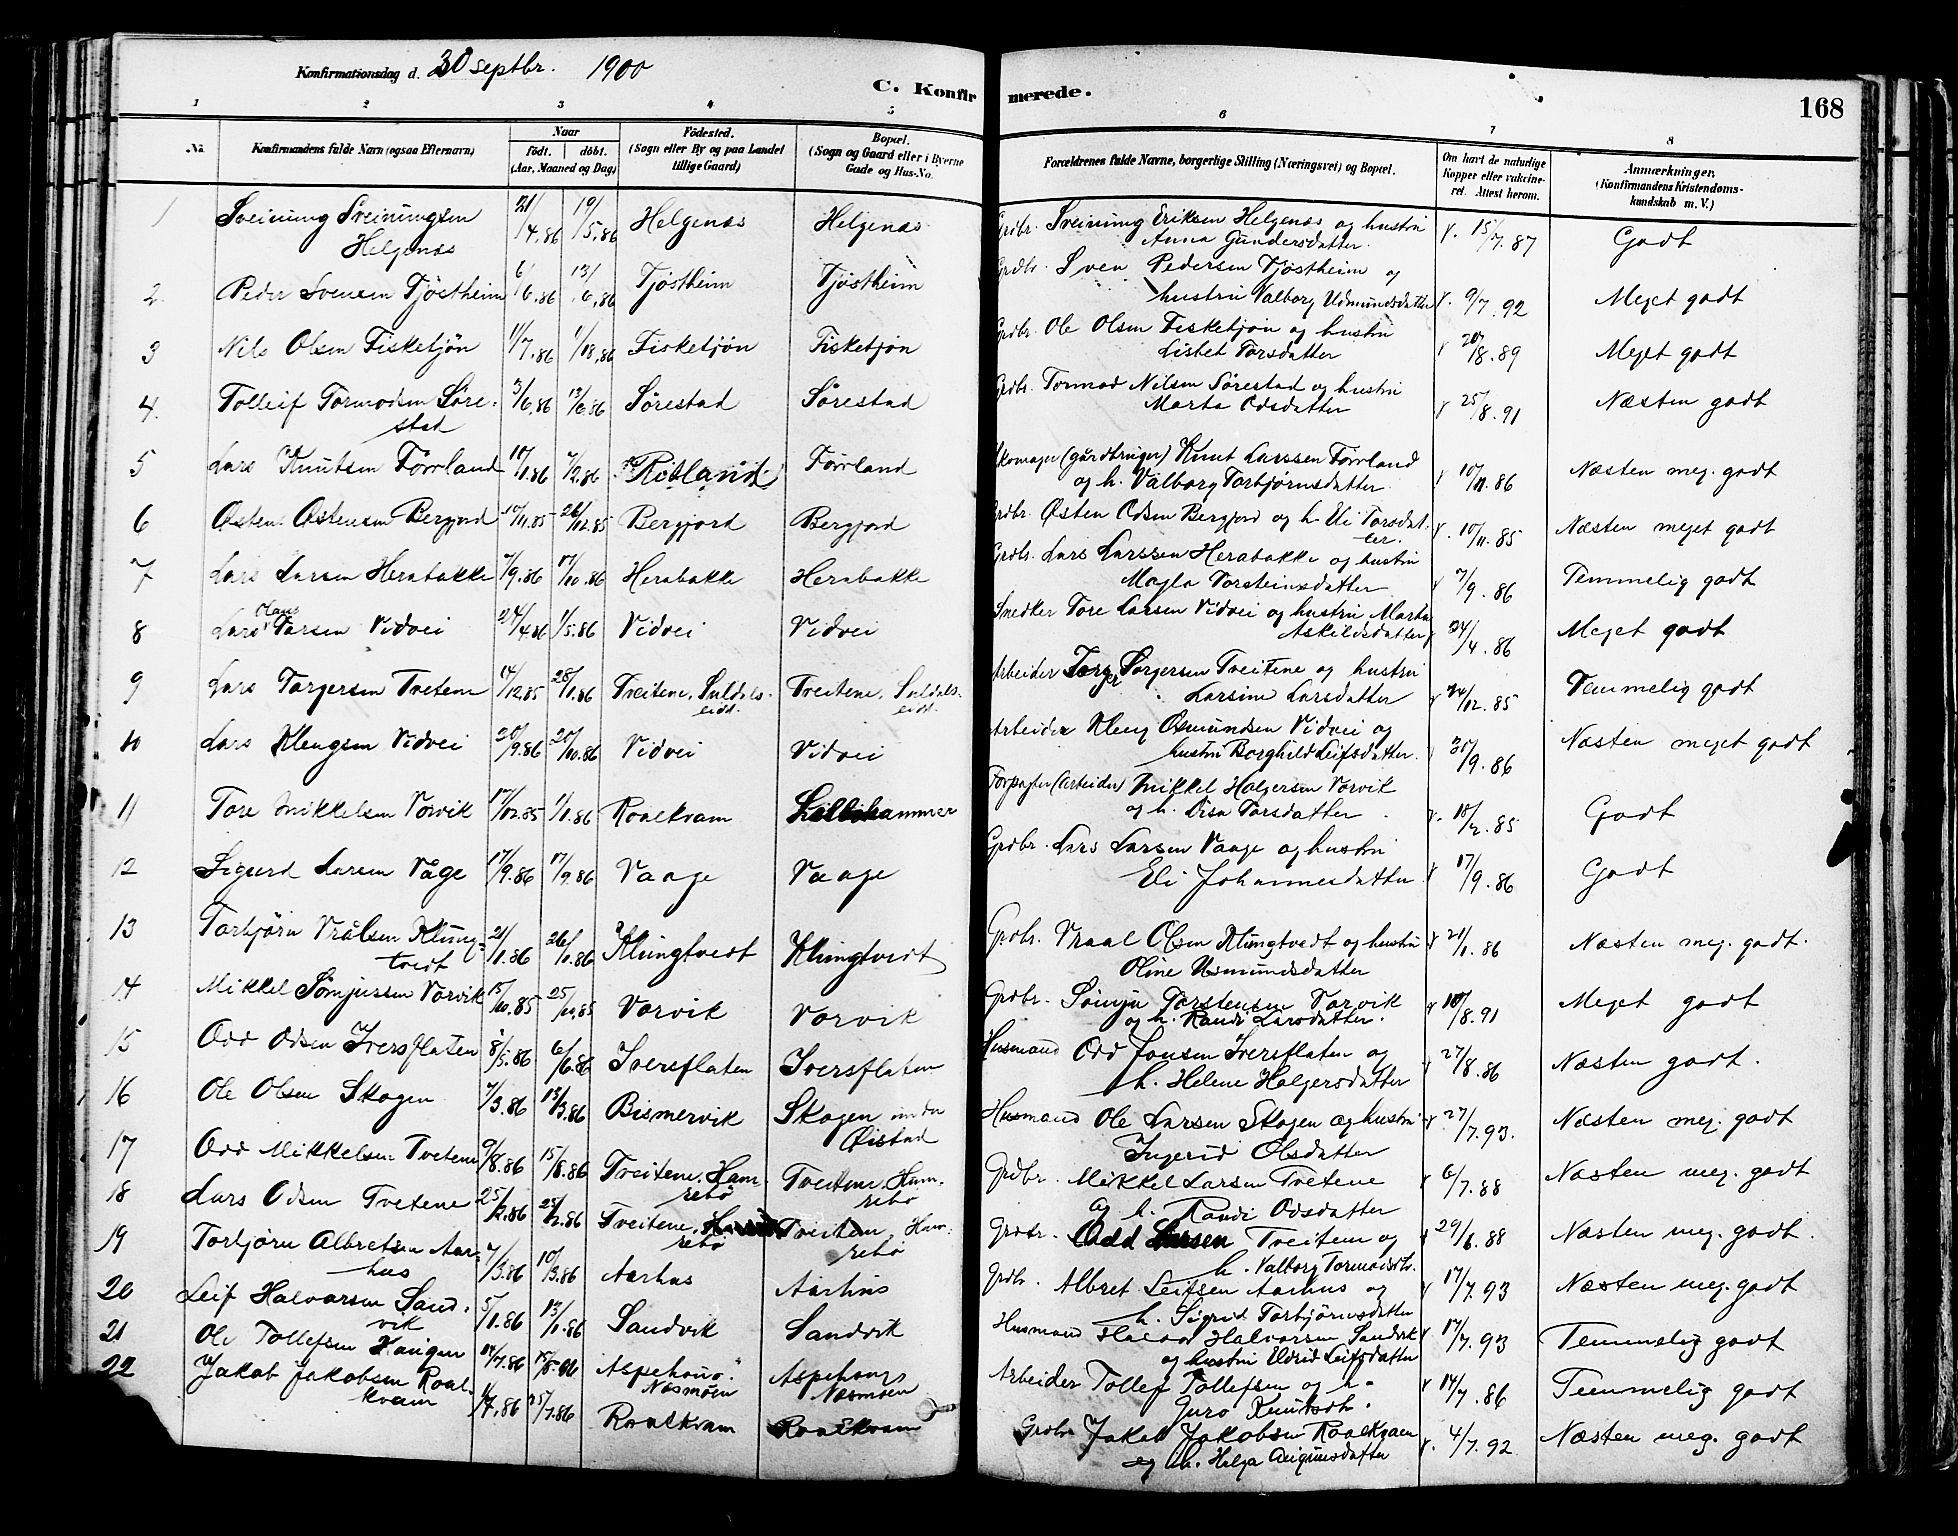 Konfirmationsdag d. 30 septbr. 1900
C. Konfirmerede.
168
1 2 3 4 5 6 7 8
No.
Konfirmandens fulde Navn (ogsaa Efternavn)
Naar
født. døbt.
(Aar, Maaned og Dag)
Fødested.
(Sogn eller By og paa Landet
tillige Gaard)
Bopæl.
(Sogn og Gaard eller i Byerne
Gade og Hus-No.
Forældrenes fulde Navne, borgerlige Stilling (Næringsvei) og Bopæl.
Om havt de naturlige
Kopper eller vakcine-
ret. Attest herom.
Anmærkninger.
(Konfirmandens Kristendoms-
kundskab m. V.)
1 Sveinung Sveinungsen 21/4.86 19/5.86 Helgenæs Helgenæs Grdbr. Sveinung Eriksen Helgenæs og hustru v. 15/7.87 Godt
Helgenæs Anna Gundersdatter
2. Peder Svensen Tjøstheim 6/6.86 13/6.86 Tjøstheim Tjøstheim Grdbr. Sven Pedersen Tjøstheim og
hustru Valborg Udmundsdatter v. 9/7.92 Meget godt
3 Nils Olsen Fisketjøn 11/7.86 1/8.86 Fisketjøn Fisketjøn Grdbr. Ole Olsen Fisketjøn og hustru
Lisbet Torsdatter v 20/8.89 Meget godt
4. Tolleif Tormodsen Søre- 3/6.86 13/6.86 Sørestad Sørestad Grdbr. Tormod Nilsen Sørestad og hustru
stad Marta Odsdatter v 25/8.91 Næsten godt
5 Lars Knutsen Førrland 10/1.86 7/2.86 Rotland Førrland Skomager (gårdbruger) Knut Larssen Førrland
og h. Valborg Torbjørnsdatter v 10/11.86 Næsten meg. godt
6 Østen Østensen Bergjord 10/11.85 26/12.85 Bergjord Bergjord Grdbr. Østen Odsen Bergjord og h. Eli Torsdat-
ter. v. 10/11.85 Næsten meget godt
7 Lars Larsen Herabakke 7/9.86 17/10.86 Herabakke Herabakke Grdbr. Lars Larssen Herabakke og hustru
Magla Torsteinsdatter v 7/9.86 Temmelig godt
8 Lars Olaus Torsen Vidvei 24/4.86 1/5.86 Vidvei Vidvei Snedker Tore Larsen Vidvei og hustru Marta
Askildsdatter v 24/4.86 Meget godt
9 Lars Torgersen Tvetene 14/12.85 28/1.86 Treitene, Suldals- Treitene, Suldals- Arbeider Torger Torgersen Treitene og hustru
eidt. eidt. Larsine Larsdatter v 24/12.85 Temmelig godt
10 Lars Klengsen Vidvei 20/9.86 20/10.86 Vidvei Vidvei Arbeider Kleng Osmundsen Vidvei og
hustru Borghild Leifsdatter. 20/9.86 Næsten meget godt
11 Tore Mikkelsen Vorvik 17/12.85 1/1.86 Roalkvam Lillehammer Forpagter (arbeider) Mikkel Holgersen Vorvik
og h. Brita Torsdatter v. 18/2.85 Godt
12 Sigurd Larsen Våge 17/9.86 17/9.86 Vaage Vaage Grdbr. Lars Larsen Vaage og hustru
Eli Johannesdatter v 17/9.86 Godt
13 Torbjørn Vrålsen Klung- 21/1.86 26/1.86 Klungtvedt Klungtvedt Grdbr. Vraal Olsen Klungtvedt og hustru v 21/1.86 Næsten meg. godt.
tvedt Oline Usmundsdatter
14 Mikkel Sømjussen Vorvik 15/10.85 25/10.85 Vorvik Vorvik Grdbr. Sømju Torstensen Vorvik
og h. Randi Larsdatter. v 10/8.91 Meget godt
15 Odd Odsen Iversflaten 8/5.86 6/6.86 Iversflaten Iversflaten Husmand Odd Jonsen Iversflaten og
h. Helene Holgersdatter v 27/8.86 Næsten godt.
16 Ole Olsen Skogen 7/3.86 13/3.86 Bismervik Skogen under Husmand Ole Larsen Skogen og hustru v 27/7.93. Næsten meg. godt
Øistad Ingerid Olsdatter
17 Odd Mikkelsen Tvetene 9/8.86 15/8.86 Treitene, Ham- Treitene, Ham- Grdbr. Mikkel Larsen Tvetene v 6/7.88 Næsten meg. godt
rebø rebø og h. Randi Odsdatter
18 Lars Odsen Tvetene 25/2.86 28/2.86 Treitene, Treitene, Ham- Grdbr. Odd Larsen Treitene og v 29/6.88 Næsten meg. godt.
rebø rebø h. Valborg Tormodsdtr.
19 Torbjørn Albretsen Aar- 7/3.86 10/3.86 Aarhus Aarhus Grdbr. Albret Leifsen Aarhus og v 17/7.93 Næsten meg. godt
hus h. Sigrid Torbjørnsdatter
20 Leif Halvarsen Sand- 5/1.86 13/1.86 Sandvik Sandvik Husmand Halvor Halvorsen Sandvik v 17/7.93 Temmelig godt
vik og hustru Eldrid Leifsdatter
21 Ole Tollefsen Haugen 14/7.86 Aspehaug, Aspehaug Arbeider Tollef Tollefsen og h. v 14/7.86 Temmelig godt
Næsmoen Næsmoen Guro Knutsdtr.
22 Jakob Jakobsen Roal- 4/4.86 25/7.86 Roalkvam Roalkvam Grdbr Jakob Jakobsen Roalkvam v. 4/7.92 Næsten meg. godt
kvam og h. Helga